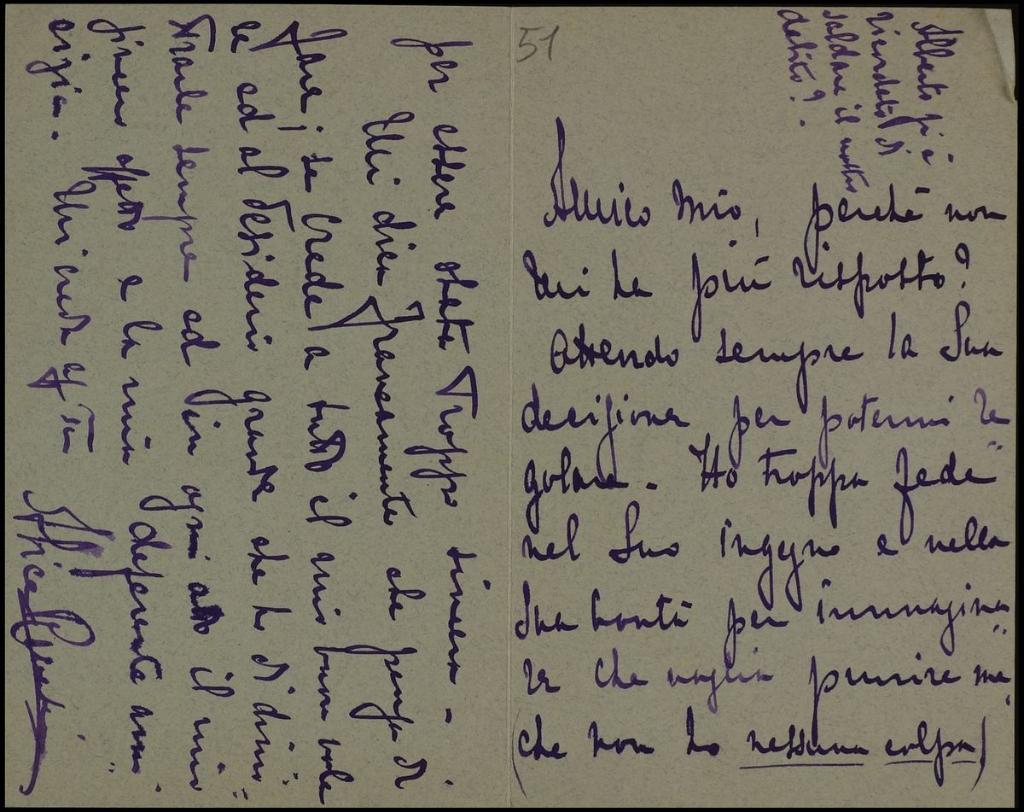 51
Alberto si è
ricordato di
saldare il nostro
debito?
Amico mio, perché non
mi ha più risposto?
Attendo sempre la Sua
decisione per potermi re
golare. Ho troppa fede
nel Suo ingegno e nella
Sua bontà per immagina
re che voglia punire me
(che non ho nessuna colpa)
per essere stata troppo sincera.
Mi dica francamente che pensa di
fare; se crede a tutto il mio buon vole
re ed al desiderio grande che ho di dimo
strarle sempre ed in ogni atto il mio
sincero affetto e la mia deferente ami
cizia. Mi creda aff.ma